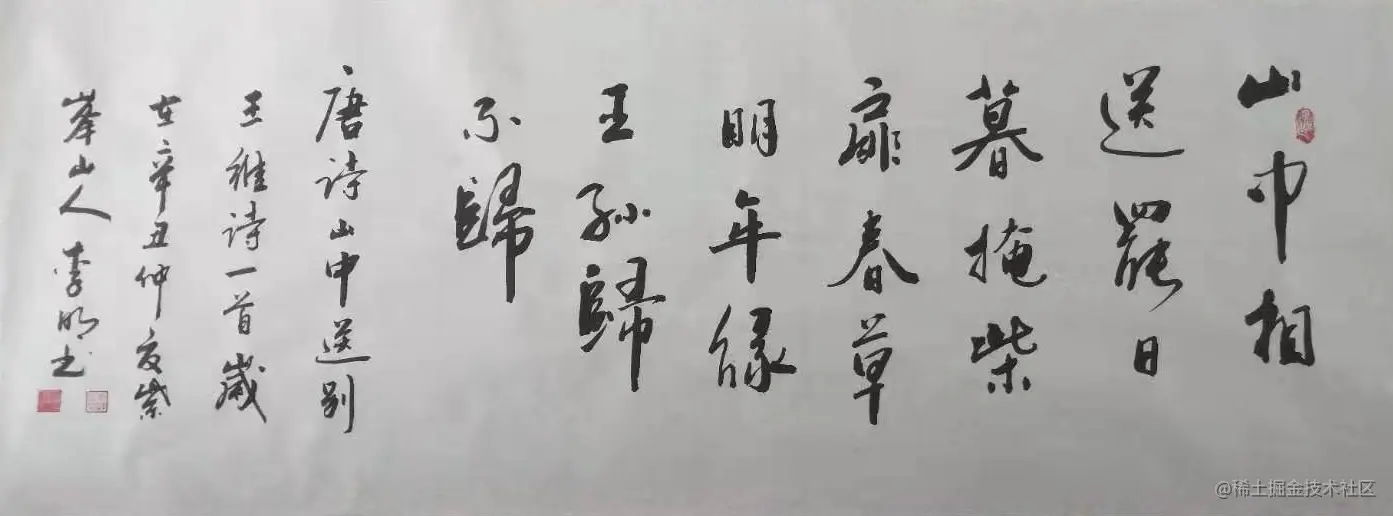 山中相
送罷日
暮掩柴
扉春草
明年緑
王孫歸
不歸
唐诗山中送别
王維诗一首歲
在辛丑仲夏紫
峯山人李明书
@稀土掘金技术社区